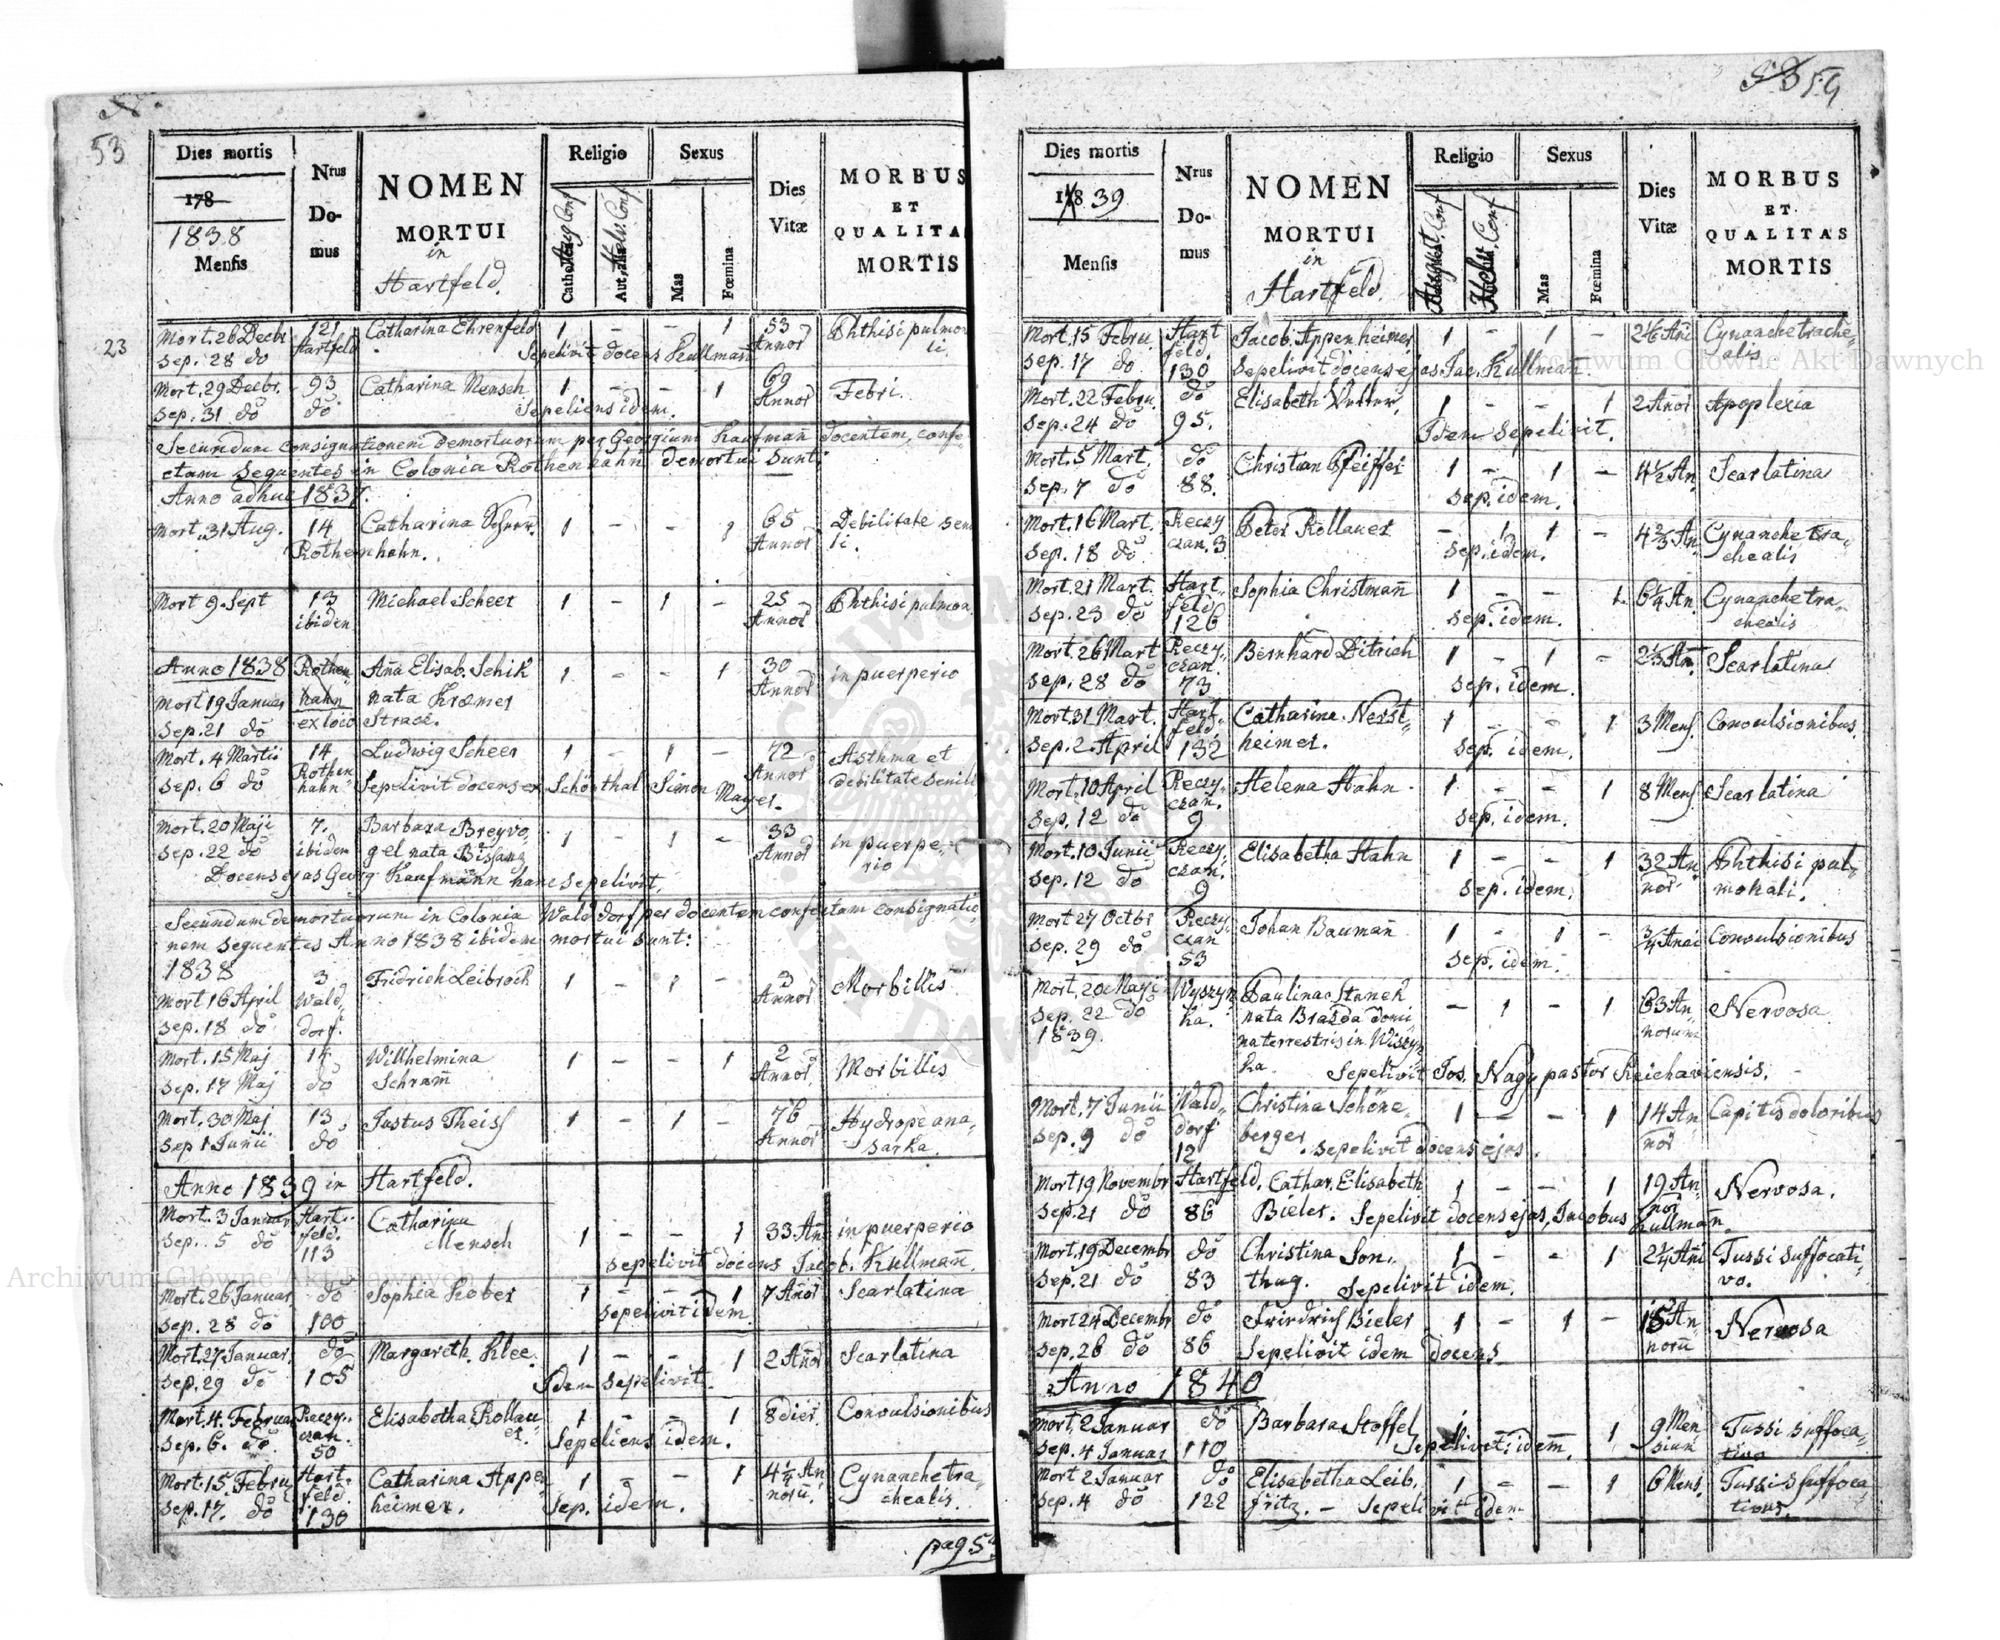 53
Dies mortis
178
1838
Mensis
Nrus
Do-
mus
NOMEN
MORTUI
in
Hartfeld.
Religio
Aug. Conf
Helv. Conf
Sexus
Mas
Fœmina
Dies
Vitæ
MORBUS
ET
QUALITA
MORTIS
23
Mort. 26 Decbr. 121 Catharina Ehrenfeld 1 - - 1 53 Phthisi pulmo
Sep. 28 do Hartfeld Sepelivit docens Kullmañ Annor li.
Mort. 29 Decbr. 93. Catharina Mensch 1 - - 1 69 Febri.
Sep. 31 do do. Sepeliens idem. Annor
Secundum Consignationem demortuorum per Georgium Kaufmañ docentem, confe-
ctam sequentes in Colonia Rothenhahn demortui sunt:
Anno adhuc 1837.
Mort. 31 Aug. 14 Catharina 1 - - 1 65 Debilitate seni
Rothenhahn. Annor li.
Mort 9 Sept 13 Michael Scheer 1 - 1 - 25 Phthisi pulmoa.
ibidem Annor
Anno 1838 Rothen Aña Elisab. Schik 1 - - 1 30 in puerperio
Mort 19 Januar hahn nata Kræmer Annor
Sep. 21 do ex loco Strace.
Mort. 4 Martii 14 Ludwig Scheer 1 - 1 - 72 Asthma et
Sep. 6 do Rothenhahn Sepelivit docens ex Schönthal Simon Mayer. Annor debilitate senili
Mort. 20 Maji 7. Barbara Breyvo, 1 - 1 - 33 in puerpe-
Sep. 22 do ibidem gel nata Bisanz Annor rio
Docens ejas Georg Kaufmann hanc sepelivit.
Secundum demortuorum in Colonia Waldorf per docentem confectam consignatio
nem sequentes Anno 1838 ibidem mortui sunt:
1838 3 Fridrich Leibrock 1 - 1 - 3 Morbillis
Mort 16 April Wald, Annor
Sep. 18 do dorf.
Mort. 15 Maj 14 Willhelmina 1 - - 1 2 Morbillis
Sep. 17 Maj do Schram̄ Annor
Mort. 30 Maj 13 Justus Theiss 1 - 1 - 76 Hydrope ana,
Sep 1 Junii do Annor sarka.
Anno 1839 in Hartfeld.
Mort. 3 Januar Hart- Catharina 1 - - 1 33 Añ in puerperio
Sep. 5 do feld. 113 Mensch Sepelivit docens Jacob. Kullmañ.
Mort. 26 Januar do Sophia Kober 1 - - 1 7 Añor Scarlatina
Sep. 28 do 100 sepelivit idem.
Mort. 27 Januar. do Margareth. Klee. 1 - - 1 2 Añor Scarlatina
Sep. 29 do 105 Idem sepelivit.
Mort. 4. Februar Reczy- Elisabetha Rollau 1 - - 1 8 dier. Convulsionibus
Sep. 6. do. czan. 50 er. Sepeliens idem.
Mort. 15 Febru Hart- Catharina Appen 1 - - 1 4¼ An Cynanche tra-
Sep. 17. do feld. 130 heimer. Sep. idem. norū. chealis.
pag 5
59
Dies mortis
1839
Mensis
Nrus
Do-
mus
NOMEN
MORTUI
in
Hartfeld.
Religio
August. Conf
Helv. Conf
Sexus
Mas
Fœmina
Dies
Vitæ
MORBUS
ET
QUALITAS
MORTIS
Mort. 15 Febru. Hart Jacob. Appenheimer 1 - 1 - 2⅙ Añi Cynanche trache-
Sep. 17 do. feld. 130 Sepelivit docens ejas Jac. Kullman. alis
Mort. 22 Febru. do Elisabeth 1 - - 1 2 Añor Apoplexia
Sep. 24 do 95. Idem sepelivit.
Mort. 5 Mart. do Christian Pfeiffer 1 - 1 - 4½ An. Scarlatina
Sep. 7 do 88. sep. idem.
Mort. 16 Mart. Reczy Peter Rollauer - 1 1 - 4⅔ An Cynanche tra-
Sep. 18 do czan. 3 sep. idem. chealis
Mort. 21 Mart. Hart- Sophia Christmañ 1 - - 1. 6¼ An. Cynanche tra-
Sep. 23 do feld 126 sep. idem. chealis
Mort. 26 Mart Reczy- Bernhard Ditrich 1 - 1 - 2⅓ Añ. Scarlatina
Sep. 28 do czan. 73 sep. idem.
Mort. 31 Mart. Hart- Catharina Nerst- 1 - - 1 3 Mens Convulsionibus.
Sep. 2. April feld, 132 heimer. sep. idem.
Mort. 10 April Reczy- Helena Hahn 1 - - 1 8 Mens Scarlatina
Sep. 12 do czan. 9 sep. idem.
Mort. 10 Junii Reczy- Elisabetha Hahn 1 - - 1 32 An Phthisi pul-
Sep. 12 do czan. 9 sep. idem. nor. monali.
Mort 27 Octbr Reczy- Johan Baumañ 1 - 1 - ¾ Anni Convulsionibus
Sep. 29 do czan 53 sep. idem.
Mort. 20 Maji Wyszyn Paulina Stanek - 1 - 1 63 An- Nervosa
Sep. 22 do ka. nata Brazda domi norum
1839. na terrestris in Wiszyn
ka Sepelivit Jos. Nagy pastor Reichaviensis.
Mort. 7 Junii Wald- Christina Schöne- 1 - - 1 14 An Capitis doloribus
Sep. 9 do dorf 12 berger. sepelivit docens ejas. nor
Mort 19 Novembr Hartfeld. Cathar. Elisabeth 1 - - 1 19 An- Nervosa.
Sep. 21 do 86 Bieler. Sepelivit docens ejas, Jacobus Kullmañ. nor
Mort. 19 Decembr do Christina Son- 1 - - 1 2¼ Añi Tussi suffocati-
Sep. 21 do 83 thug. Sepelivit idem. vo.
Mort 24 Decembr do Friedrich Bieler 1 - 1 - 15 An- Nervosa
Sep. 26 do 86 Sepelivit idem docens norū
Anno 1840
Mort. 2 Januar do Barbara Stoffel 1 - - 1 9 Men Tussi suffoca-
Sep. 4 Januar 110 Sepelivit idem. sium tivo
Mort 2 Januar do Elisabetha Leib, 1 - - 1 6 Mens. Tussi suffoca,
Sep. 4 do 122 fritz. - Sepelivit idem tivo.
Archiwum Główne Akt Dawnych
Archiwum Główne Akt Dawnych